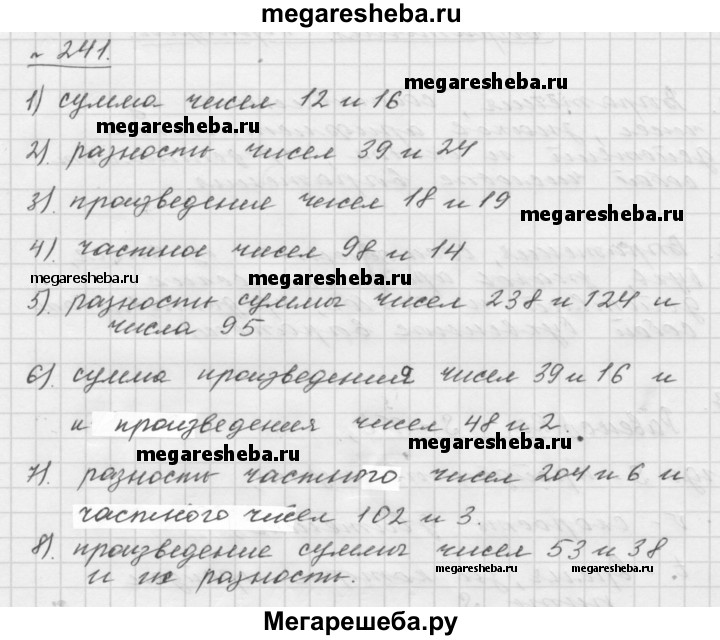 megaresheba.ru
№ 241.
1) сумма чисел 12 и 16
megaresheba.ru
megaresheba.ru
2). разность чисел 39 и 24
3). произведение чисел 18 и 19
megaresheba.ru
4). частное чисел 98 и 14
megaresheba.ru
megaresheba.ru
5). разность суммы чисел 238 и 124 и
числа 95
6). сумма произведения чисел 39 и 16 и
и произведения чисел 48 и 2.
megaresheba.ru
megaresheba.ru
7). разность частного чисел 204 и 6 и
частного чисел 102 и 3.
megaresheba.ru
8). произведение суммы чисел 53 и 38
и их разность.
megaresheba.ru
megaresheba.ru
Мегарешеба.ру